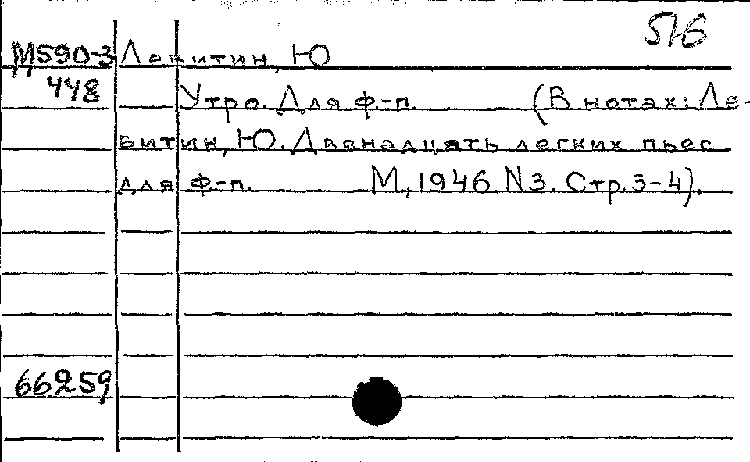 516
М590-3 Левитин, Ю
448
Утро. Для ф-п. (В нотах: Ле-
витин, Ю. Двенадцать легких пьес
для ф-п. М, 1946 N3. Стр. 3-4).
66259